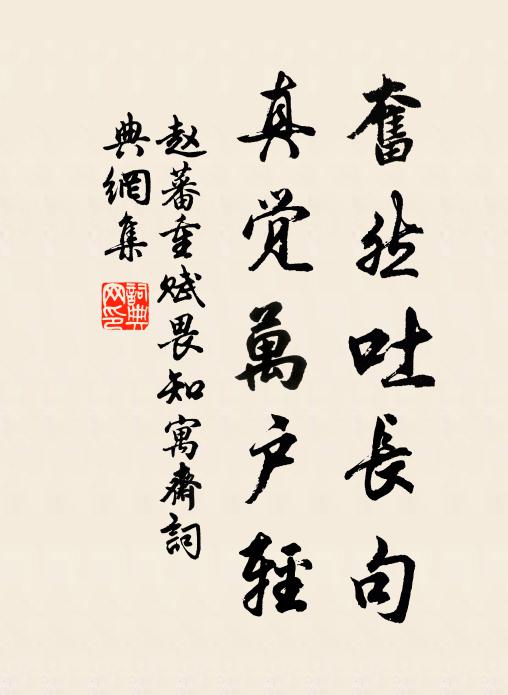 奮然吐長句
真觉萬户輕
赵蕃重赋畏知寓齋詞
典網集
詞典网印